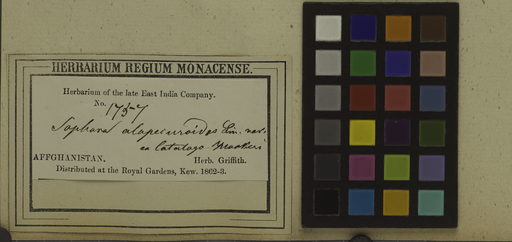 HERBARIUM REGIUM MONACENSE.
Herbarium of the late East India Company.
No. 1757
Sophora alopecuroides Lin. var.
ea catalogo
AFFGHANISTAN. Herb. Griffith.
Distributed at the Royal Gardens, Kew. 1862-3.